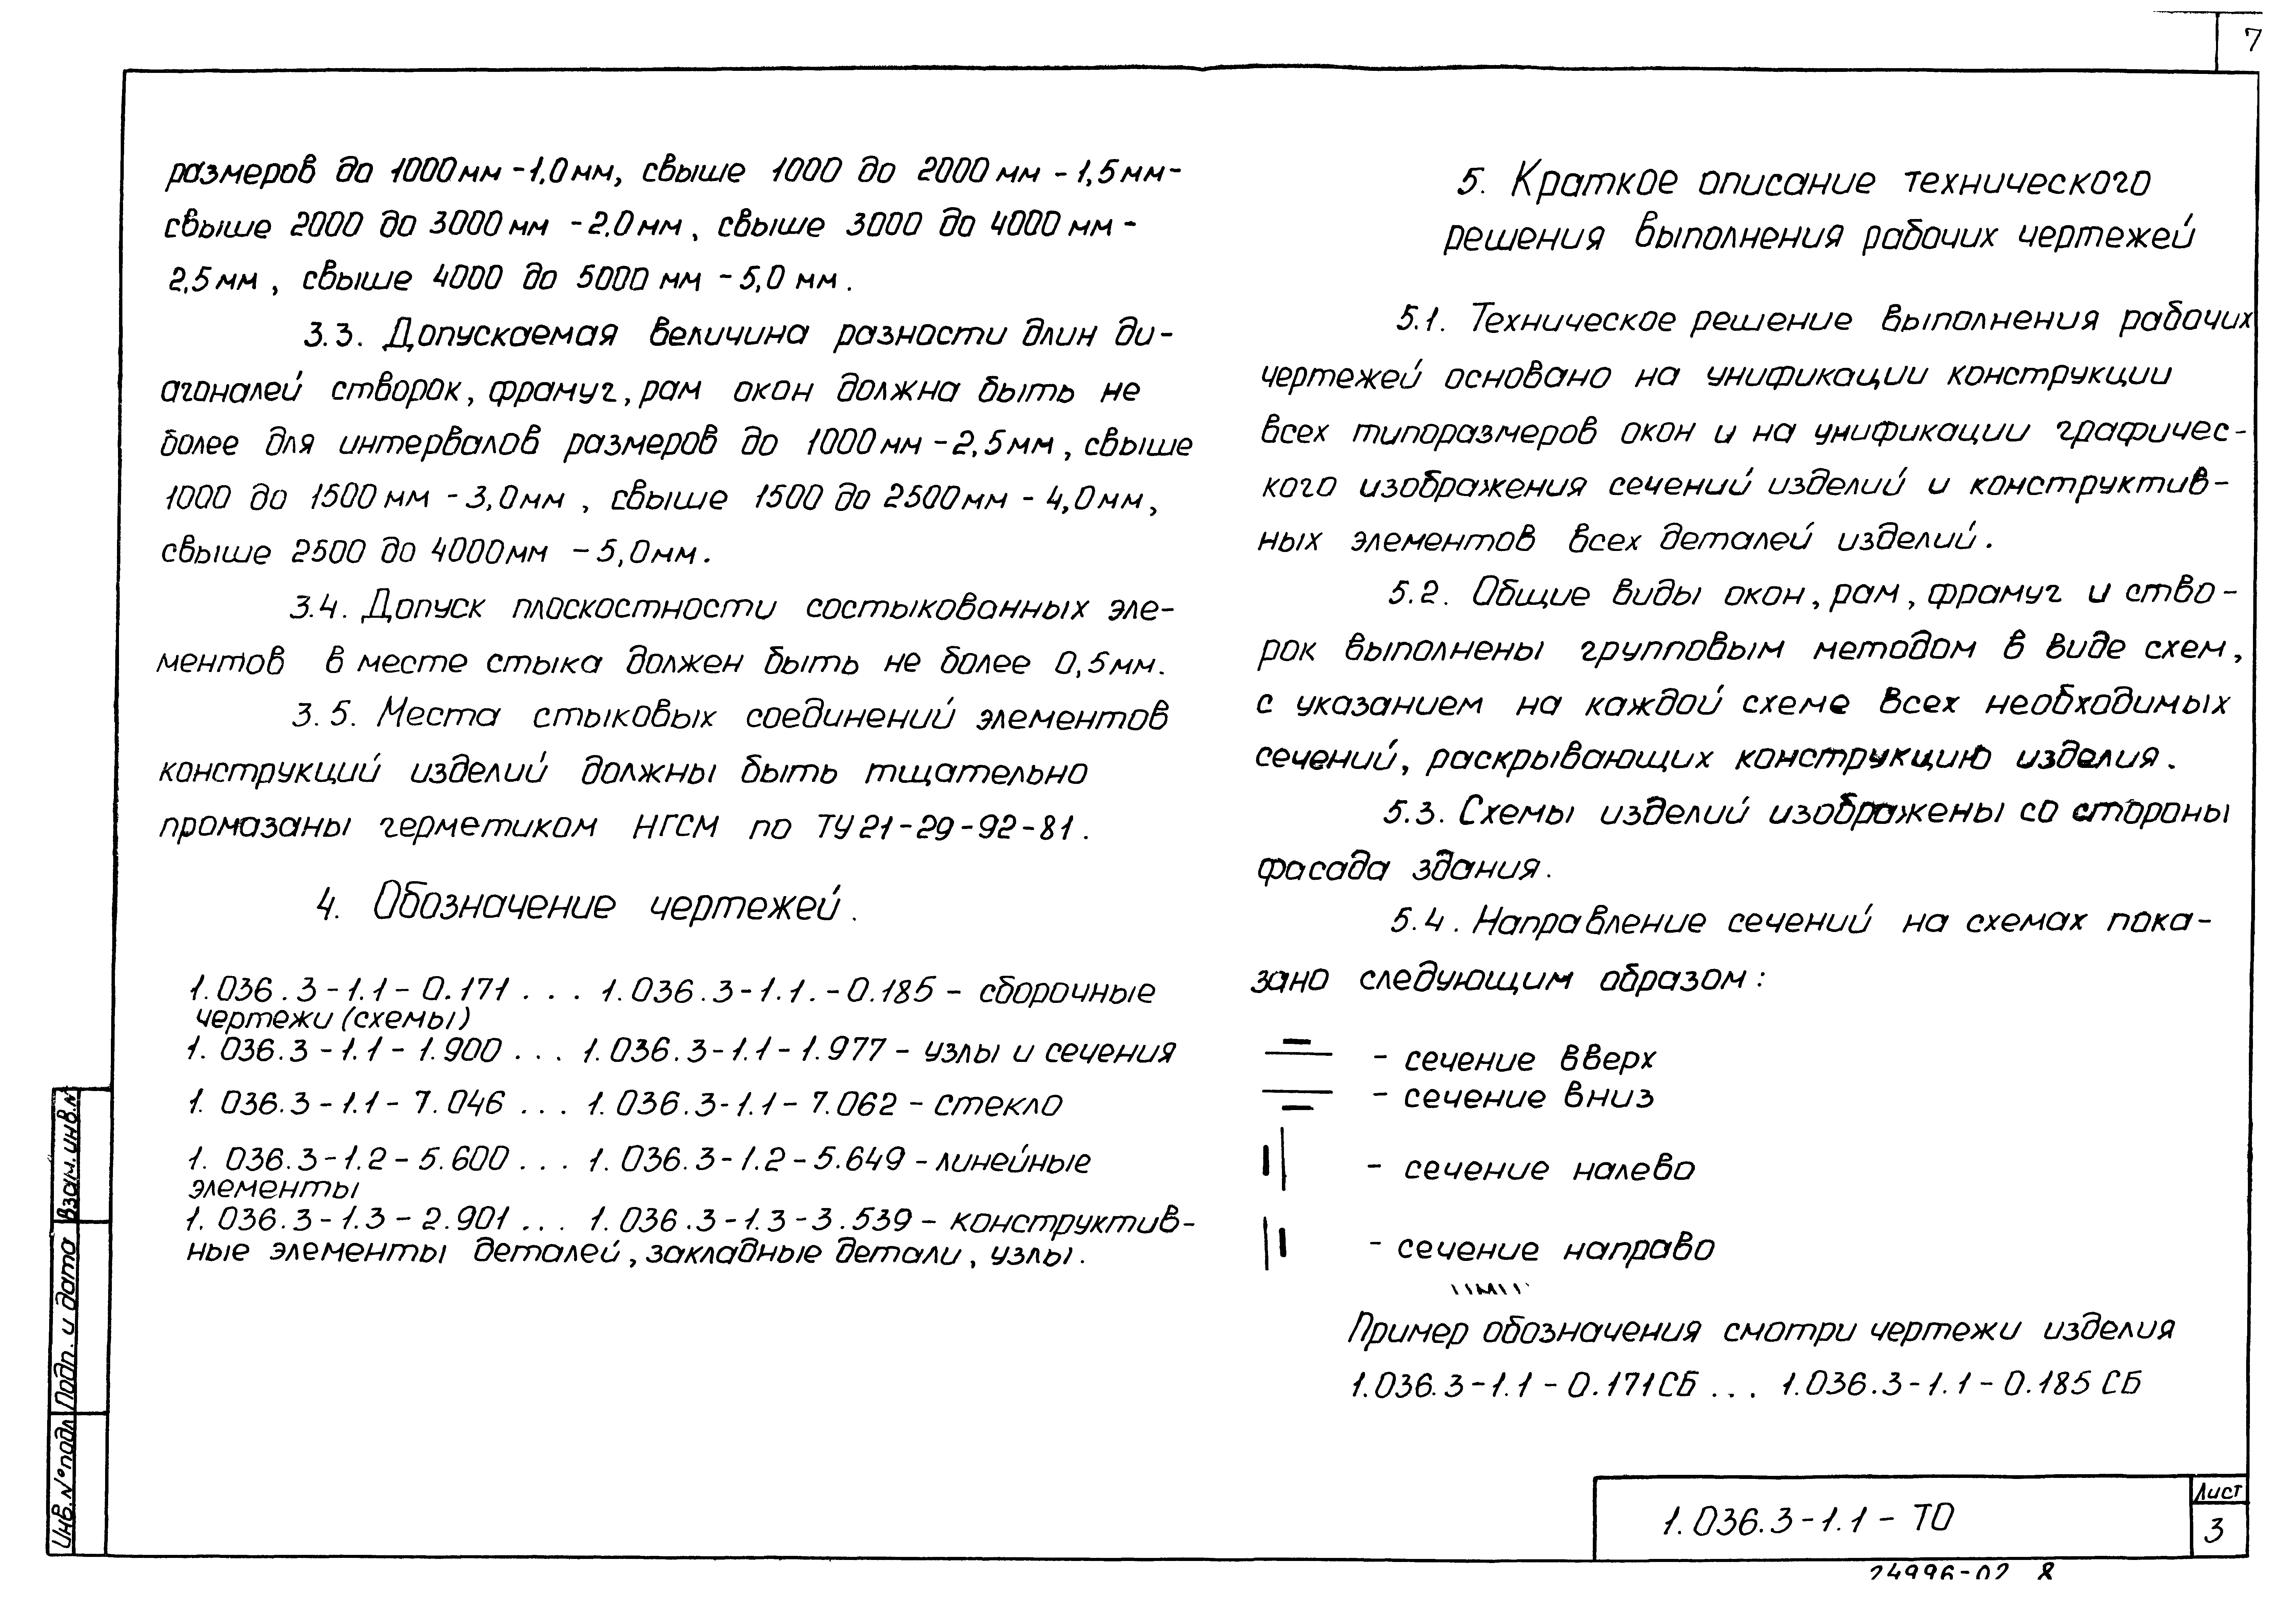 7
размеров до 1000мм -1,0мм, свыше 1000 до 2000 мм - 1,5мм-
свыше 2000 до 3000мм - 2,0мм, свыше 3000 до 4000 мм -
2,5мм, свыше 4000 до 5000 мм - 5,0 мм.
3.3. Допускаемая величина разности длин ди-
агоналей створок, фрамуг, рам окон должна быть не
более для интервалов размеров до 1000мм - 2,5мм, свыше
1000 до 1500 мм - 3,0мм, свыше 1500 до 2500мм - 4,0мм,
свыше 2500 до 4000мм - 5,0мм.
3.4. Допуск плоскостности состыкованных эле-
ментов в месте стыка должен быть не более 0,5мм.
3.5. Места стыковых соединений элементов
конструкций изделий должны быть тщательно
промазаны герметиком НГСМ по ТУ21-29-92-81.
4. Обозначение чертежей.
1.036.3-1.1-0.171 ... 1.036.3-1.1.-0.185 - сборочные
чертежи (схемы)
1.036.3-1.1-1.900 ... 1.036.3-1.1-1.977 - узлы и сечения
1.036.3-1.1-7.046 ... 1.036.3-1.1-7.062 - стекло
1.036.3-1.2-5.600 ... 1.036.3-1.2-5.649 - линейные
элементы
1.036.3-1.3-2.901 ... 1.036.3-1.3-3.539 - конструктив-
ные элементы деталей, закладные детали, узлы.
5. Краткое описание технического
решения выполнения рабочих чертежей
5.1. Техническое решение выполнения рабочих
чертежей основано на унификации конструкции
всех типоразмеров окон и на унификации графичес-
кого изображения сечений изделий и конструктив-
ных элементов всех деталей изделий.
5.2. Общие виды окон, рам, фрамуг и ство-
рок выполнены групповым методом в виде схем,
с указанием на каждой схеме всех необходимых
сечений, раскрывающих конструкцию изделия.
5.3. Схемы изделий изображены со стороны
фасада здания.
5.4. Направление сечений на схемах пока-
зано следующим образом:
- сечение вверх
- сечение вниз
- сечение налево
- сечение направо
Пример обозначения смотри чертежи изделия
1.036.3-1.1-0.171СБ ... 1.036.3-1.1-0.185 СБ
Взам.инв.№
Подп. и дата
Инв.№подл
1.036.3-1.1-ТО
Лист
3
24996-02 8